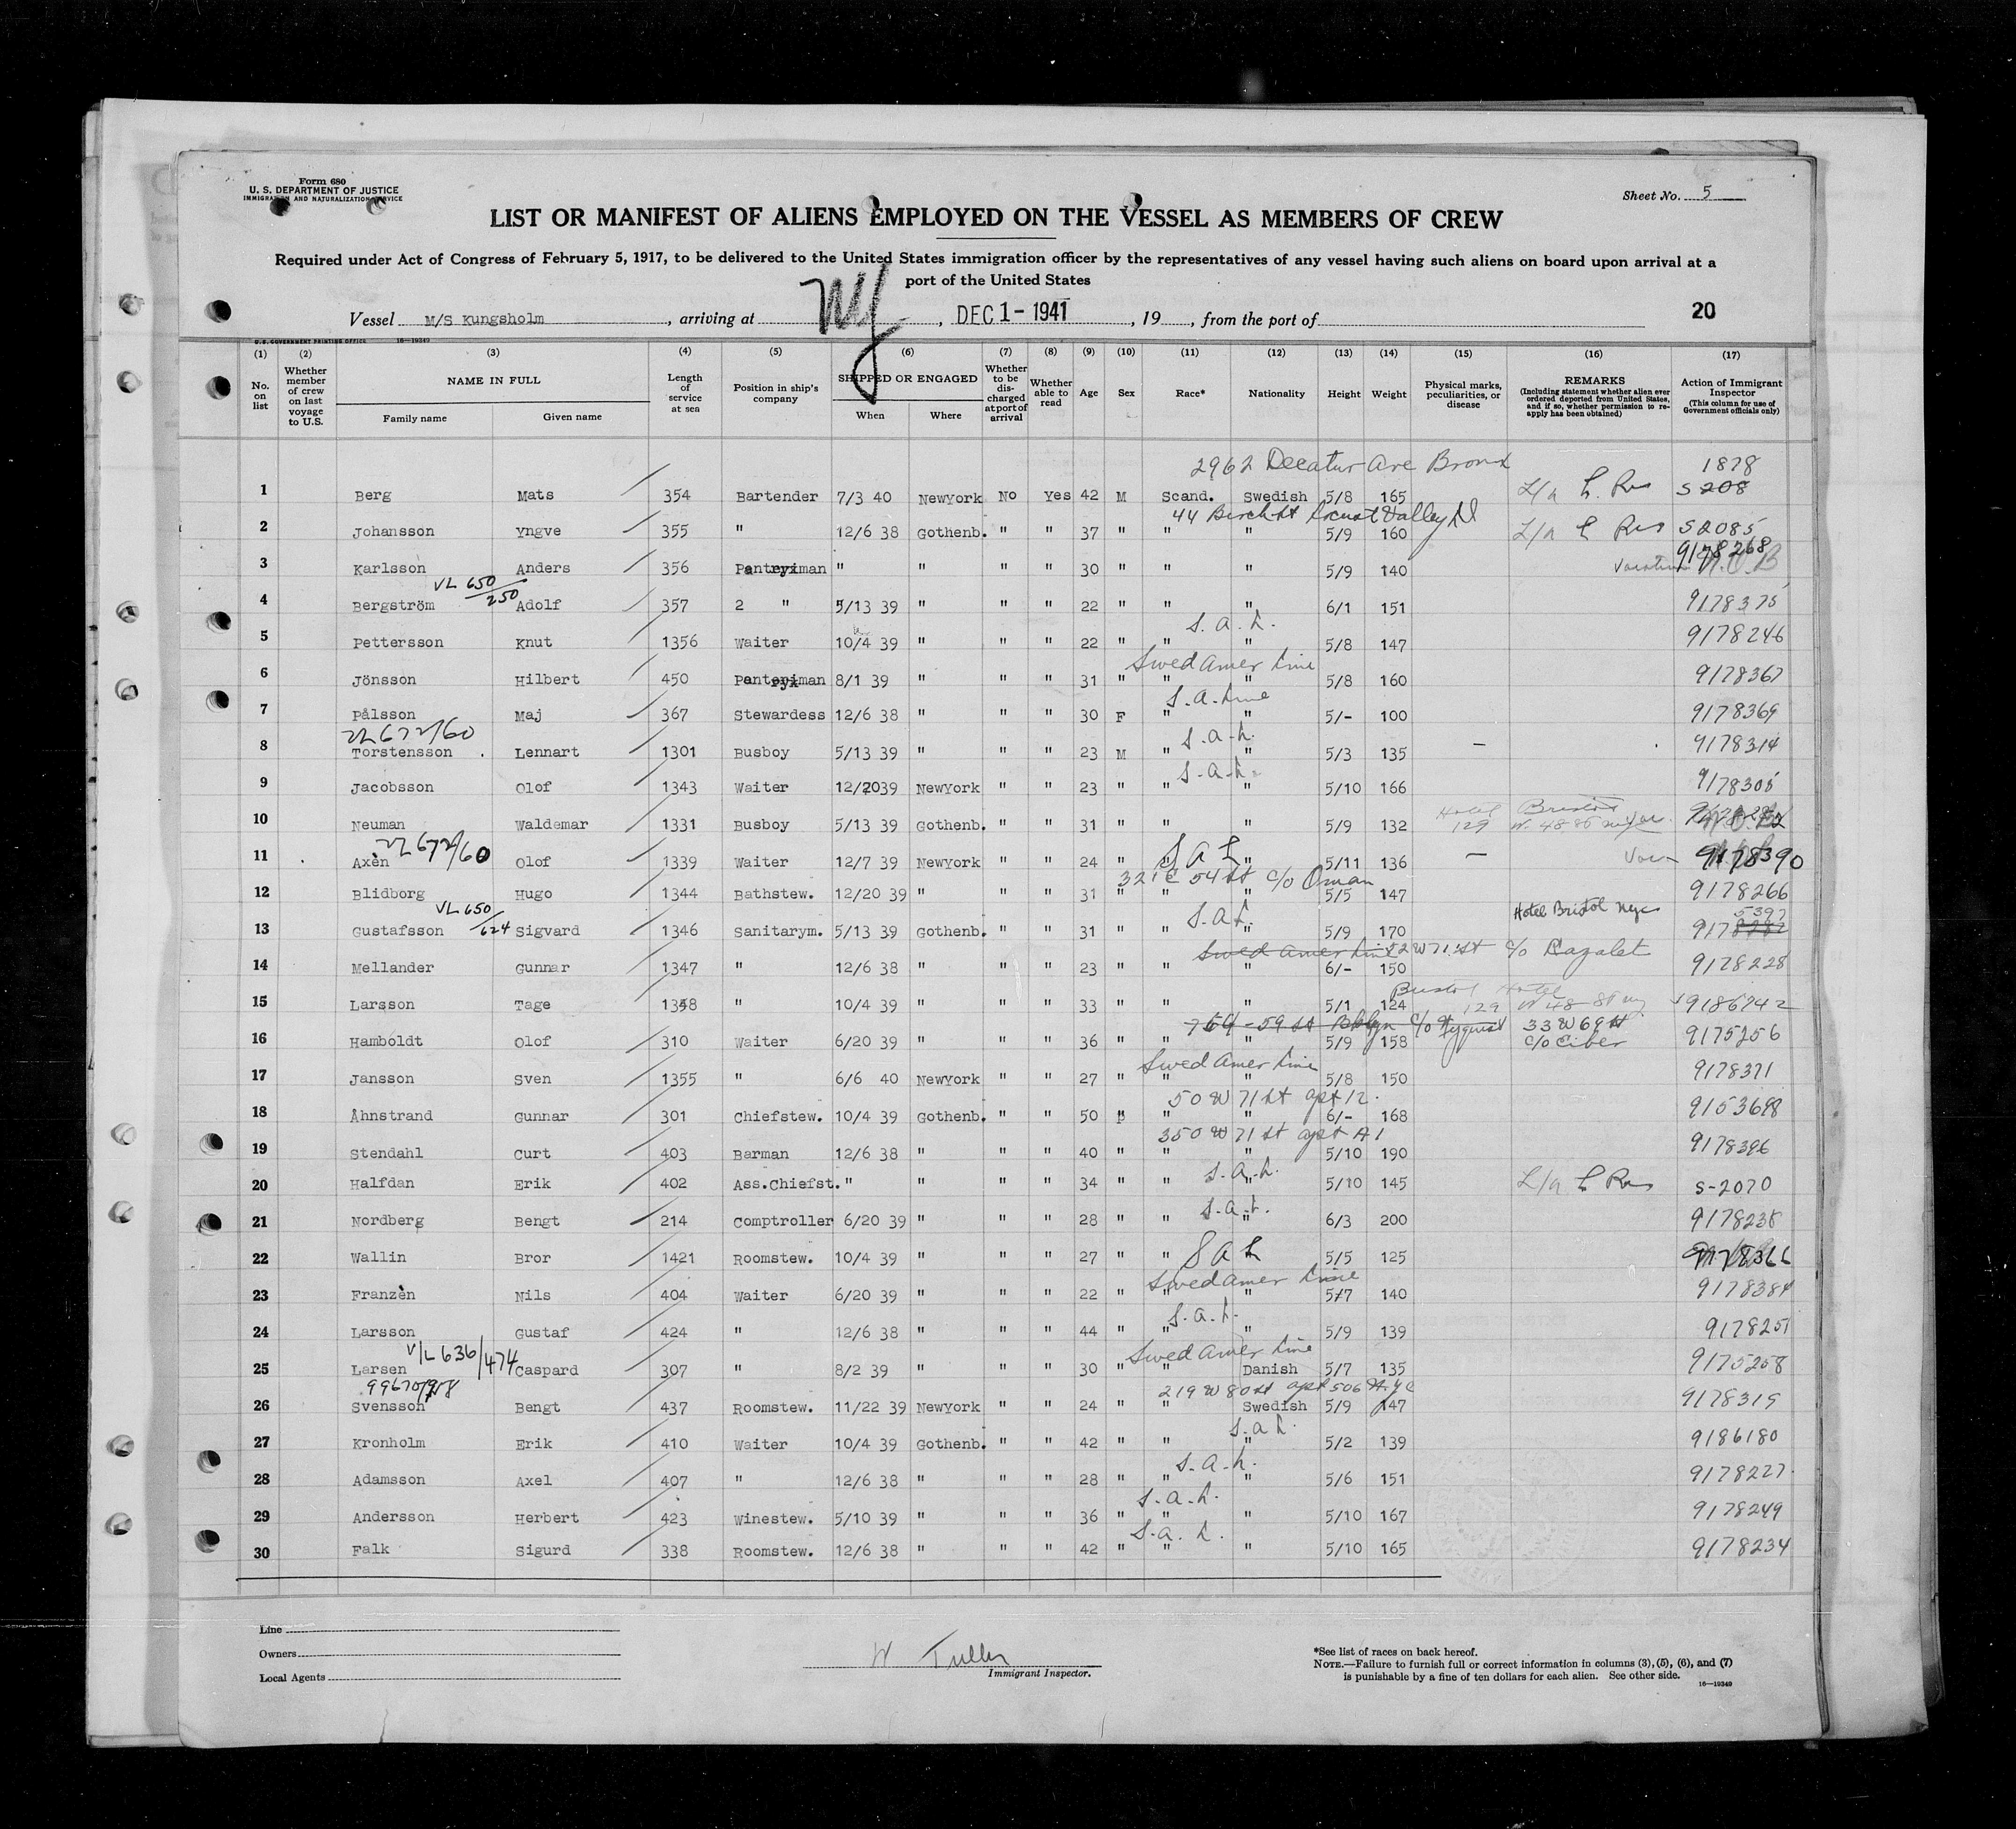 Form 680
U. S. DEPARTMENT OF JUSTICE
IMMIGRATION AND NATURALIZATION SERVICE
Sheet No. 5
LIST OR MANIFEST OF ALIENS EMPLOYED ON THE VESSEL AS MEMBERS OF CREW
Required under Act of Congress of February 5, 1917, to be delivered to the United States immigration officer by the representatives of any vessel having such aliens on board upon arrival at a
port of the United States
Vessel M/S Kungsholm, arriving at NY, DEC 1 - 1941, 19, from the port of
20
U.S. GOVERNMENT PRINTING OFFICE 16—19349
(1) (2) (3) (4) (5) (6) (7) (8) (9) (10) (11) (12) (13) (14) (15) (16) (17)
No. on list
Whether member of crew on last voyage to U.S.
NAME IN FULL
Family name Given name
Length of service at sea
Position in ship's company
SHIPPED OR ENGAGED
When Where
Whether to be discharged at port of arrival
Whether able to read
Age
Sex
Race*
Nationality
Height
Weight
Physical marks, peculiarities, or disease
REMARKS
(Including statement whether alien ever ordered deported from United States, and if so, whether permission to reapply has been obtained)
Action of Immigrant Inspector
(This column for use of Government officials only)
2962 Decatur Ave Bronx 1878
1 Berg Mats 354 Bartender 7/3 40 NewYork No Yes 42 M Scand. Swedish 5/8 165 L/a L. Res S 208
44 Birch St Locust Valley
2 Johansson Yngve 355 " 12/6 38 Gothenb. " " 37 " " " 5/9 160 L/a L Res S2085
3 Karlsson Anders 356 Pantryman " " " " 30 " " " 5/9 140 Vacation 9178268
VL 650/250
4 Bergström Adolf 357 2 " 5/13 39 " " " 22 " " " 6/1 151 9178375
S.A.L.
5 Pettersson Knut 1356 Waiter 10/4 39 " " " 22 " " " 5/8 147 9178246
Swed Amer Line
6 Jönsson Hilbert 450 Pantryman 8/1 39 " " " 31 " " " 5/8 160 9178367
S.A. Line
7 Pålsson Maj 367 Stewardess 12/6 38 " " " 30 F " " 5/- 100 9178369
VL 672/60 S.A.L.
8 Torstensson Lennart 1301 Busboy 5/13 39 " " " 23 M " " 5/3 135 — 9178314
S.A.L.
9 Jacobsson Olof 1343 Waiter 12/2039 NewYork " " 23 " " " 5/10 166 9178305
Hotel Bristol
10 Neuman Waldemar 1331 Busboy 5/13 39 Gothenb. " " 31 " " " 5/9 132 129 W. 48
VL 672/60 SAL
11 Axèn Olof 1339 Waiter 12/7 39 NewYork " " 24 " " " 5/11 136 — 9178390
321 E 54 St c/o Oman
12 Blidborg Hugo 1344 Bathstew. 12/20 39 " " " 31 " " " 5/5 147 9178266
VL 650/624 S.A.L. Hotel Bristol NYC 5397
13 Gustafsson Sigvard 1346 Sanitarym. 5/13 39 Gothenb. " " 31 " " " 5/9 170 9178282
Swed Amer Line 52 W 71 St c/o Cazalet
14 Mellander Gunnar 1347 " 12/6 38 " " " 23 " " " 6/- 150 9178228
Bristol Hotel
15 Larsson Tage 1358 " 10/4 39 " " " 33 " " " 5/1 124 129 W 48 St NY 9186742
764 - 59 St Bklyn c/o 33 W 69 St
16 Hamboldt Olof 310 Waiter 6/20 39 " " " 36 " " " 5/9 158 c/o Eiber 9175256
Swed Amer Line
17 Jansson Sven 1355 " 6/6 40 NewYork " " 27 " " " 5/8 150 9178371
50 W 71 St apt 12.
18 Åhnstrand Gunnar 301 Chiefstew. 10/4 39 Gothenb. " " 50 " " " 6/- 168 9153698
350 W 71 St apt A1
19 Stendahl Curt 403 Barman 12/6 38 " " " 40 " " " 5/10 190 9178396
S.A.L.
20 Halfdan Erik 402 Ass.Chiefst. " " " " 34 " " " 5/10 145 L/a L Res S-2070
S.A.L.
21 Nordberg Bengt 214 Comptroller 6/20 39 " " " 28 " " " 6/3 200 9178238
22 Wallin Bror 1421 Roomstew. 10/4 39 " " " 27 " " SAL 5/5 125 9178366
Swed Amer Line
23 Franzèn Nils 404 Waiter 6/20 39 " " " 22 " " " 5/7 140 9178384
S.A.L.
24 Larsson Gustaf 424 " 12/6 38 " " " 44 " " " 5/9 139 9178251
V/L 636/474 Swed Amer Line
25 Larsen Caspard 307 " 8/2 39 " " " 30 " " Danish 5/7 135 9175258
99670/958 219 W 80 St apt 506 NYC
26 Svensson Bengt 437 Roomstew. 11/22 39 NewYork " " 24 " " Swedish 5/9 147 9178319
S.A.L.
27 Kronholm Erik 410 Waiter 10/4 39 Gothenb. " " 42 " " " 5/2 139 9186180
S.A.L.
28 Adamsson Axel 407 " 12/6 38 " " " 28 " " " 5/6 151 9178227
S.A.L.
29 Andersson Herbert 423 Winestew. 5/10 39 " " " 36 " " " 5/10 167 9178249
S.A.L.
30 Falk Sigurd 338 Roomstew. 12/6 38 " " " 42 " " " 5/10 165 9178234
Line
Owners
Local Agents
W Tuller
Immigrant Inspector.
*See list of races on back hereof.
NOTE.—Failure to furnish full or correct information in columns (3), (5), (6), and (7)
is punishable by a fine of ten dollars for each alien. See other side.
16—19349